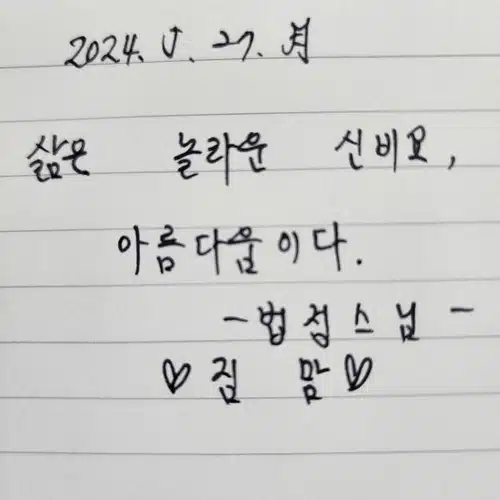 2024. 5. 27. 月
삶은 놀라운 신비요,
아름다움이다.
- 법정스님 -
♡집 맘♡